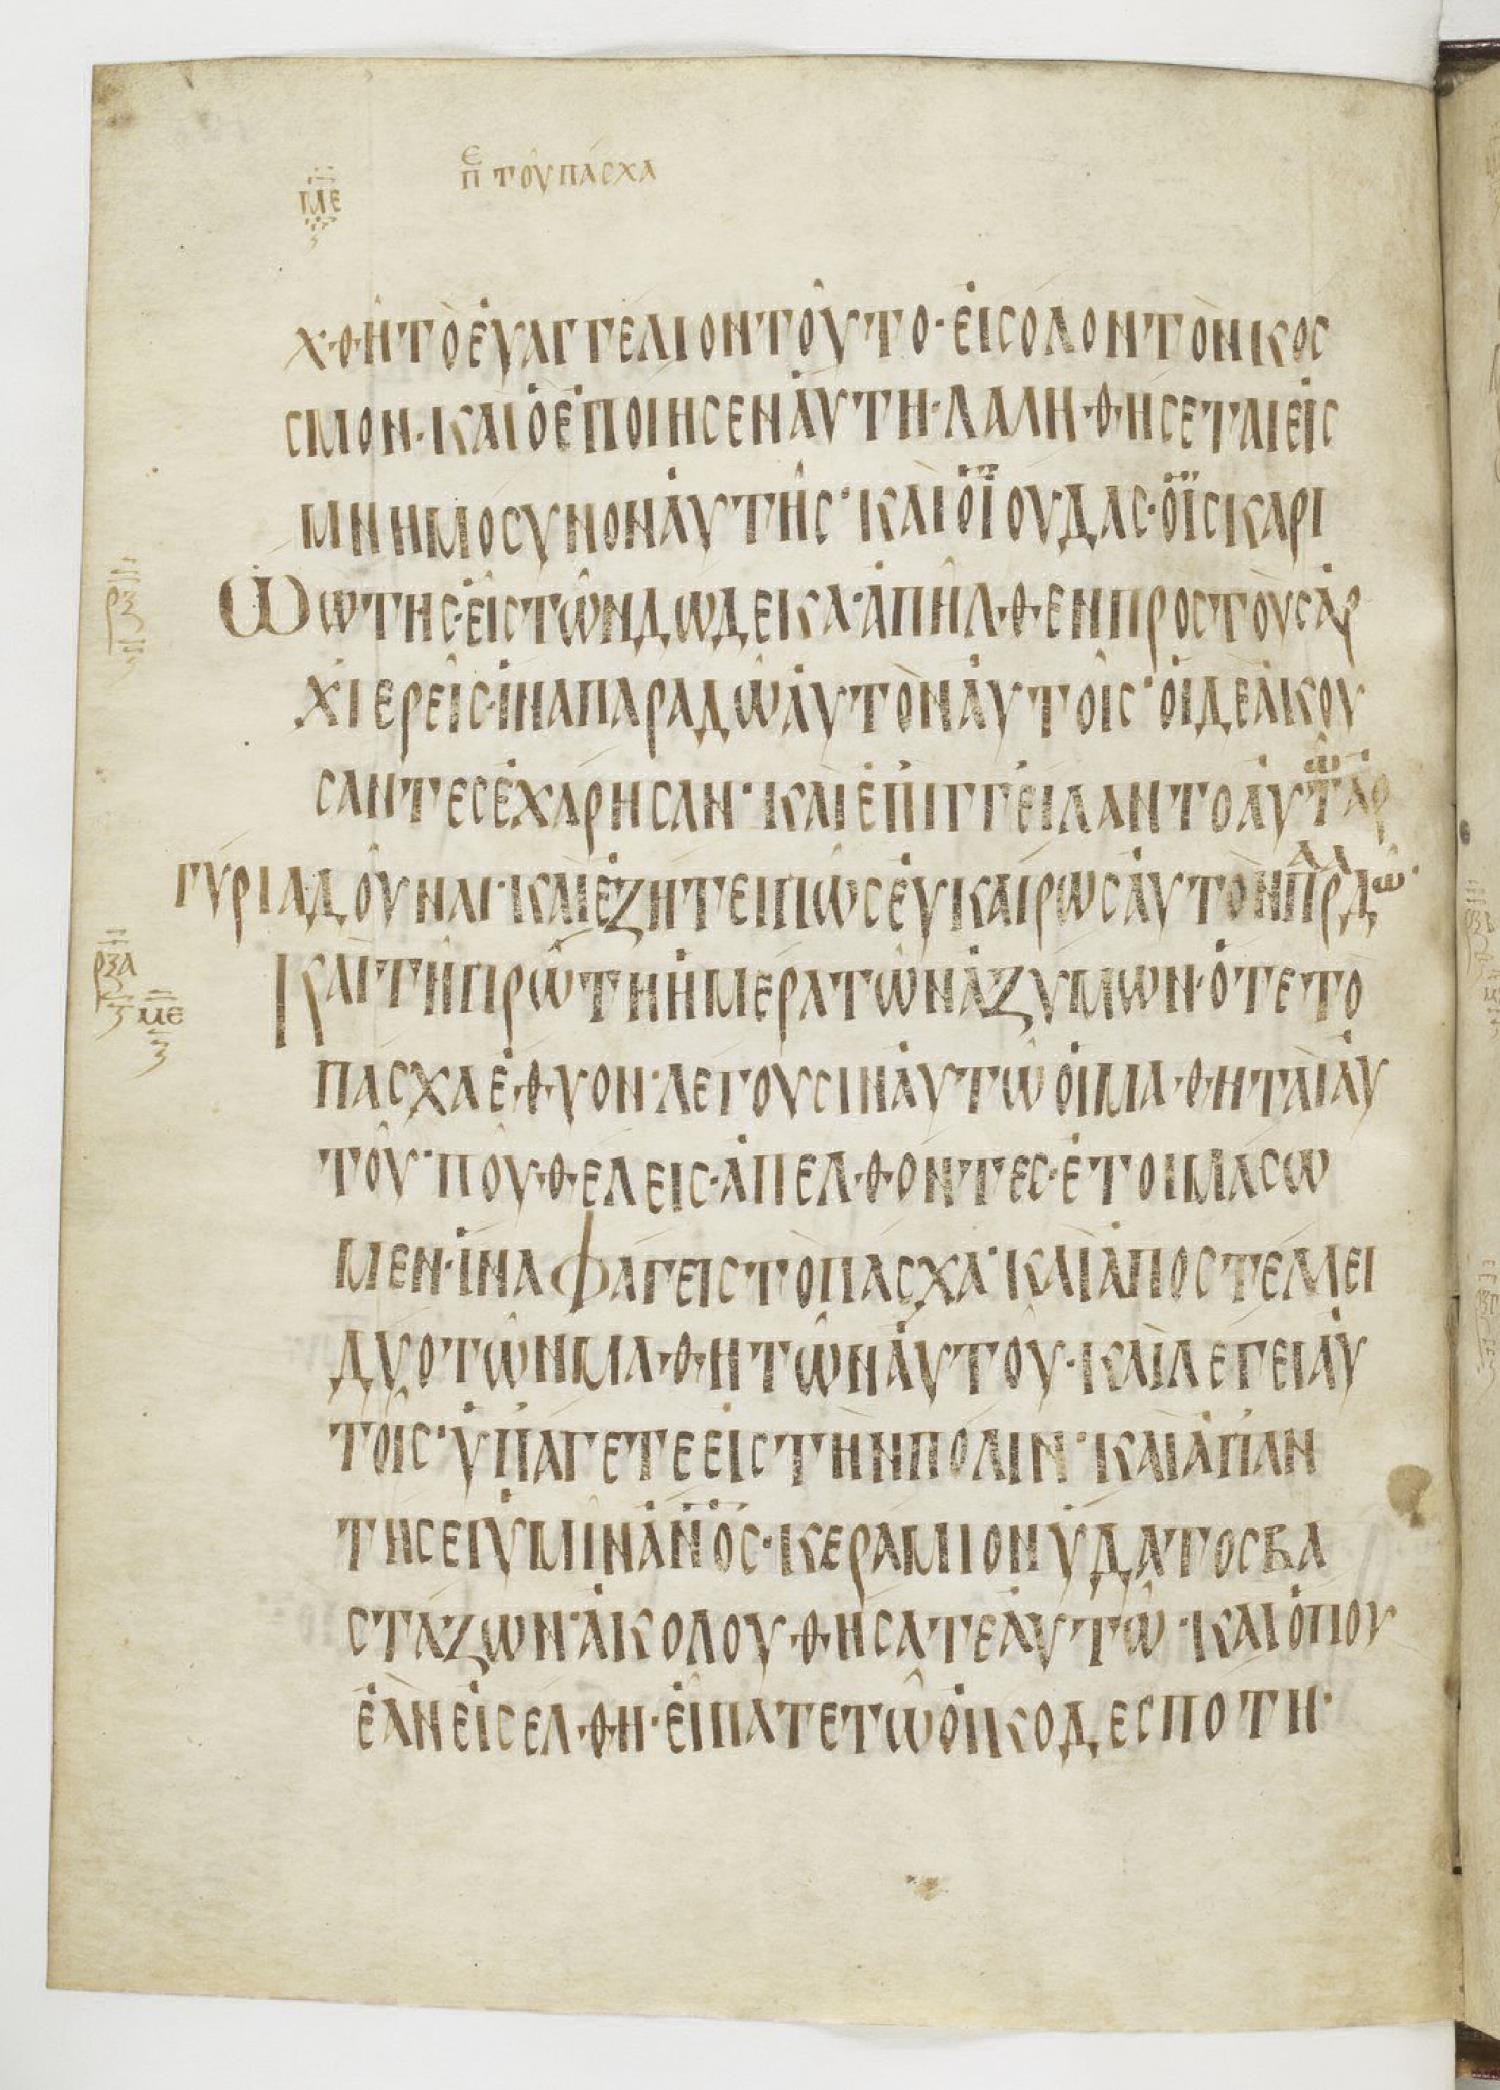 ΜΕ
ΕΠ ΤΟΥ ΠΑΣΧΑ
ΧΘΗ ΤΟ ΕΥΑΓΓΕΛΙΟΝ ΤΟΥΤΟ· ΕΙΣ ΟΛΟΝ ΤΟΝ ΚΟΣ
ΣΜΟΝ· ΚΑΙ Ο ΕΠΟΙΗΣΕΝ ΑΥΤΗ· ΛΑΛΗΘΗΣΕΤΑΙ ΕΙΣ
ΜΝΗΜΟΣΥΝΟΝ ΑΥΤΗΣ· ΚΑΙ Ο ΪΟΥΔΑΣ· Ο ΪΣΚΑΡΙ
ΩΩΤΗΣ· ΕΙΣ ΤΩΝ ΔΩΔΕΚΑ· ΑΠΗΛΘΕΝ ΠΡΟΣ ΤΟΥΣ ΑΡ
ΧΙΕΡΕΙΣ· ΙΝΑ ΠΑΡΑΔΩ ΑΥΤΟΝ ΑΥΤΟΙΣ· ΟΙ ΔΕ ΑΚΟΥ
ΣΑΝΤΕΣ ΕΧΑΡΗΣΑΝ· ΚΑΙ ΕΠΙΓΓΕΙΛΑΝΤΟ ΑΥΤΩ ΑΡ
ΓΥΡΙΑ ΔΟΥΝΑΙ· ΚΑΙ ΕΖΗΤΕΙ ΠΩΣ ΕΥΚΑΙΡΩΣ ΑΥΤΟΝ ΠΑΡΑΔΩ·
ΡΞΑ
ΜΕ
ΚΑΙ ΤΗ ΠΡΩΤΗ ΗΜΕΡΑ ΤΩΝ ΑΖΥΜΩΝ· ΟΤΕ ΤΟ
ΠΑΣΧΑ ΕΦΥΟΝ· ΛΕΓΟΥΣΙΝ ΑΥΤΩ ΟΙ ΜΑΘΗΤΑΙ ΑΥ
ΤΟΥ· ΠΟΥ ΘΕΛΕΙΣ· ΑΠΕΛΘΟΝΤΕΣ· ΕΤΟΙΜΑΣΩ
ΜΕΝ· ΙΝΑ ΦΑΓΕΙΣ ΤΟ ΠΑΣΧΑ· ΚΑΙ ΑΠΟΣΤΕΛΛΕΙ
ΔΥΟ ΤΩΝ ΜΑΘΗΤΩΝ ΑΥΤΟΥ· ΚΑΙ ΛΕΓΕΙ ΑΥ
ΤΟΙΣ· ΥΠΑΓΕΤΕ ΕΙΣ ΤΗΝ ΠΟΛΙΝ· ΚΑΙ ΑΠΑΝ
ΤΗΣΕΙ ΥΜΙΝ ΑΝΟΣ· ΚΕΡΑΜΙΟΝ ΥΔΑΤΟΣ ΒΑ
ΣΤΑΖΩΝ· ΑΚΟΛΟΥΘΗΣΑΤΕ ΑΥΤΩ· ΚΑΙ ΟΠΟΥ
ΕΑΝ ΕΙΣΕΛΘΗ· ΕΙΠΑΤΕ ΤΩ ΟΙΚΟΔΕΣΠΟΤΗ·